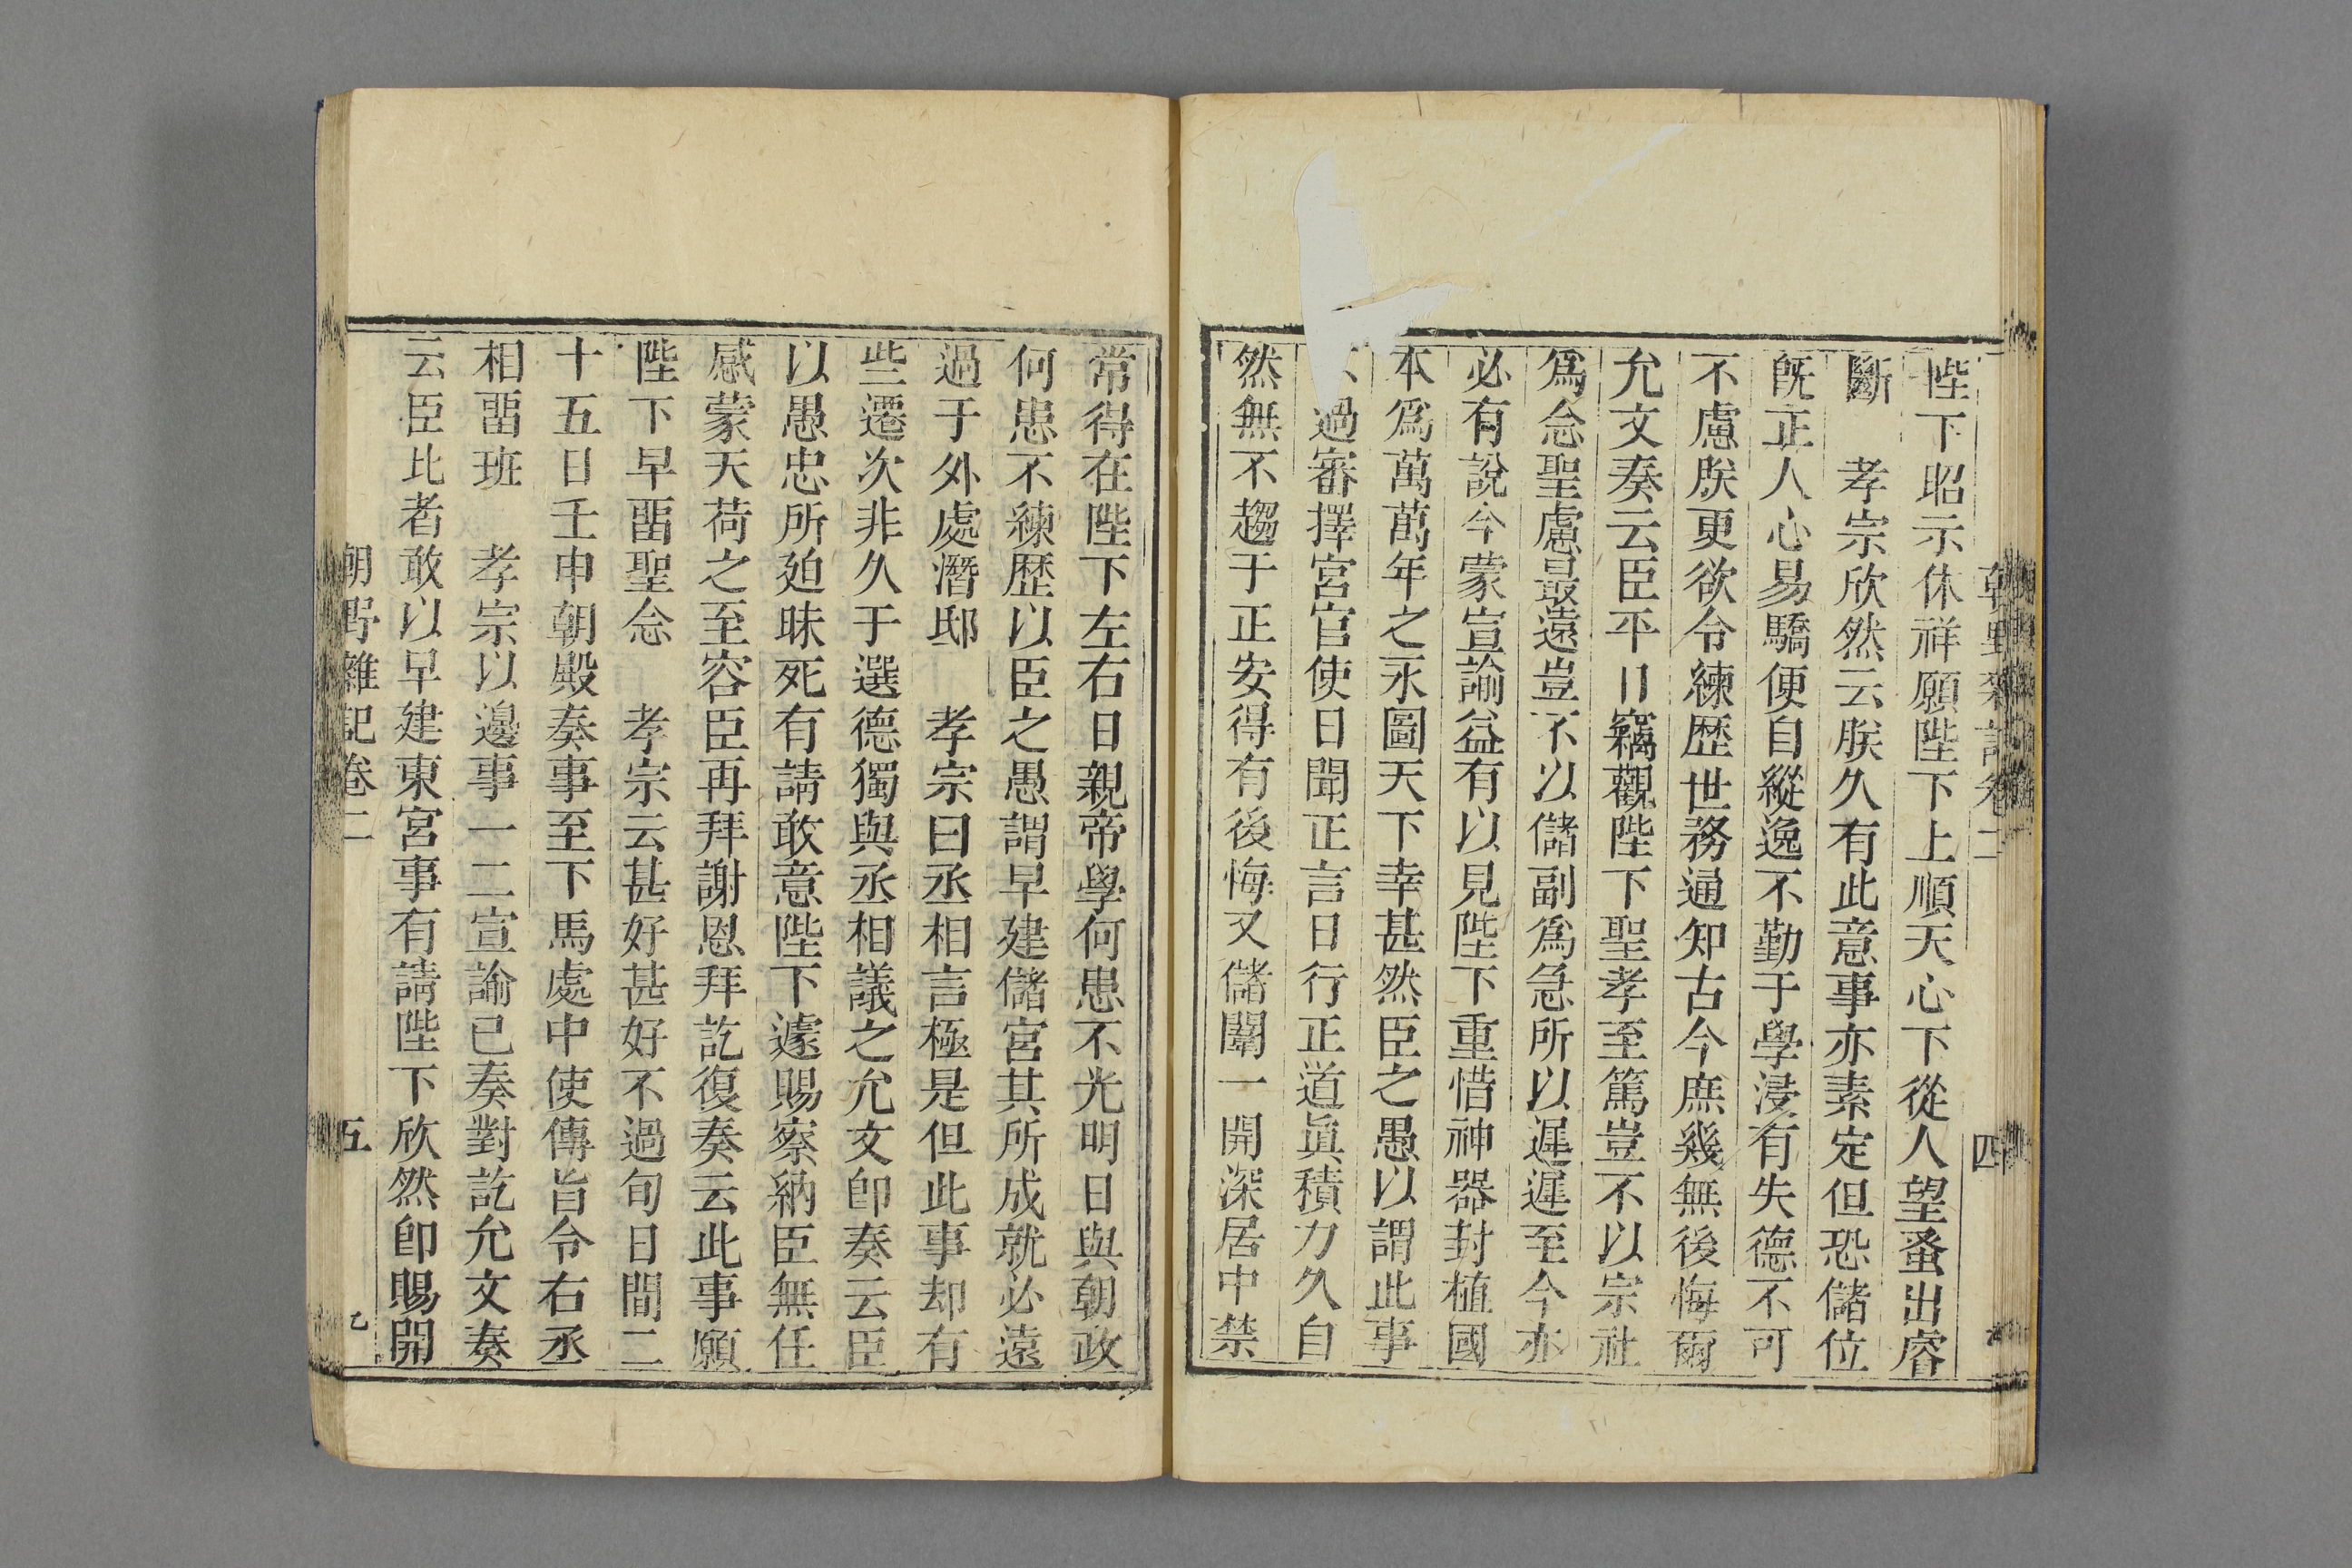 朝野雜記卷二 四
陛下昭示休祥願陛下上順天心下從人望蚤出睿
斷 孝宗欣然云朕久有此意事亦素定但恐儲位
旣正人心易驕便自縱逸不勤于學浸有失德不可
不慮朕更欲令練歷世務通知古今庶幾無後悔爾
允文奏云臣平日竊觀陛下聖孝至篤豈不以宗社
爲念聖慮最遠豈不以儲副爲急所以遲遲至今亦
必有說今蒙宣諭益有以見陛下重惜神器封植國
本爲萬萬年之永圖天下幸甚然臣之愚以謂此事
過審擇宮官使日聞正言日行正道眞積力久自
然無不趨于正安得有後悔又儲闈一開深居中禁
常得在陛下左右日親帝學何患不光明日與朝政
何患不練歷以臣之愚謂早建儲宮其所成就必遠
過于外處潛邸 孝宗曰丞相言極是但此事却有
些遷次非久于選德獨與丞相議之允文卽奏云臣
以愚忠所廹昧死有請敢意陛下遽賜察納臣無任
感蒙天荷之至容臣再拜謝恩拜訖復奏云此事願
陛下早畱聖念 孝宗云甚好甚好不過旬日間二
十五日壬申朝殿奏事至下馬處中使傳旨令右丞
相畱班 孝宗以邊事一二宣諭已奏對訖允文奏
云臣比者敢以早建東宮事有請陛下欣然卽賜開
朝野雜記卷二 五